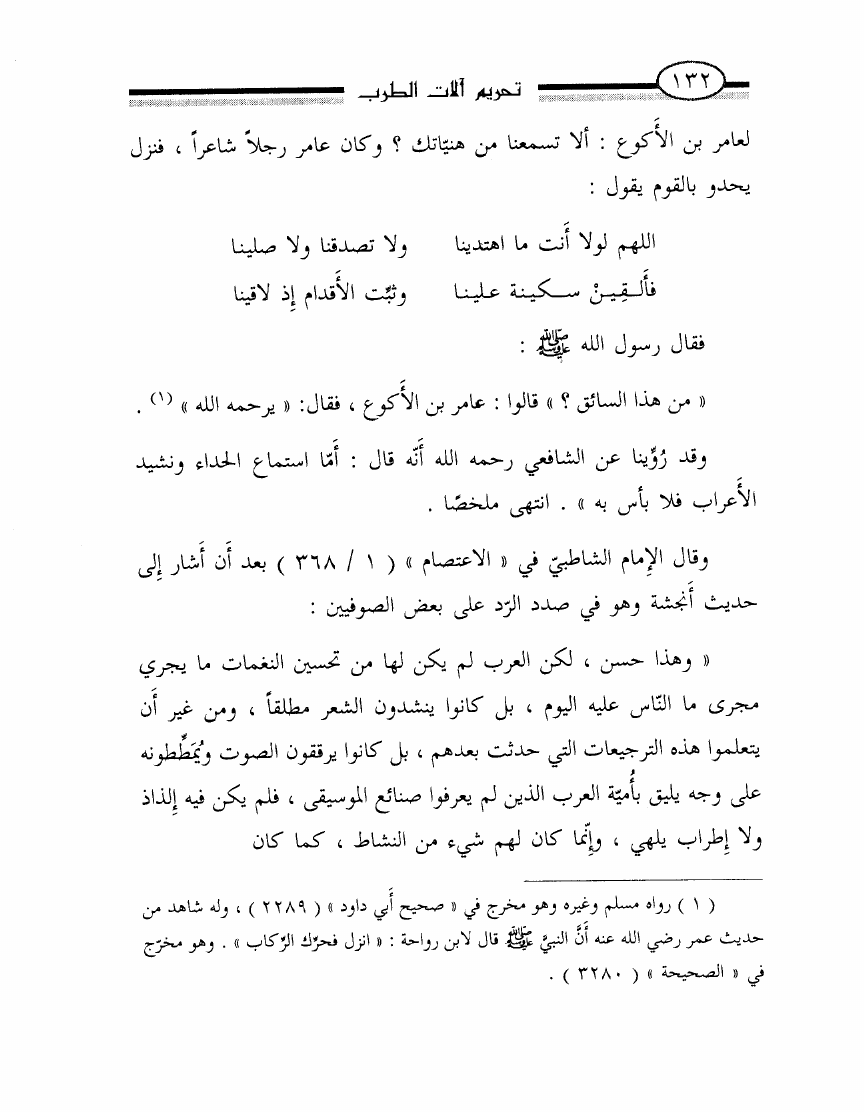 ١٣٢ تحريم آلات الطرب
لعامر بن الأَكوع : ألا تسمعنا من هنيّاتك ؟ وكان عامر رجلاً شاعراً ، فنزل
يحدو بالقوم يقول :
اللهم لولا أَنت ما اهتدينا ولا تصدقنا ولا صلينا
فأَلـقِـيـنْ سـكـيـنـة عـلـيـنـا وثبِّت الأَقدام إِذ لاقينا
فقال رسول الله ﷺ :
« من هذا السائق ؟ » قالوا : عامر بن الأَكوع ، فقال: « يرحمه الله » (١) .
وقد رُوِّينا عن الشافعي رحمه الله أَنّه قال : أَمّا استماع الحداء ونشيد
الأَعراب فلا بأس به » . انتهى ملخصًا .
وقال الإِمام الشاطبيّ في « الاعتصام » ( ١ / ٣٦٨ ) بعد أَن أَشار إِلى
حديث أَنجشة وهو في صدد الرّد على بعض الصوفيين :
« وهذا حسن ، لكن العرب لم يكن لها من تحسين النغمات ما يجري
مجرى ما النّاس عليه اليوم ، بل كانوا ينشدون الشعر مطلقاً ، ومن غير أَن
يتعلموا هذه الترجيعات التي حدثت بعدهم ، بل كانوا يرققون الصوت ويُمَطِّطونه
على وجه يليق بأُميّة العرب الذين لم يعرفوا صنائع الموسيقى ، فلم يكن فيه إِلذاذ
ولا إِطراب يلهي ، وإِنّما كان لهم شيء من النشاط ، كما كان
( ١ ) رواه مسلم وغيره وهو مخرج في « صحيح أَبي داود » ( ٢٢٨٩ ) ، وله شاهد من
حديث عمر رضي الله عنه أَنَّ النبيَّ ﷺ قال لابن رواحة : « انزل فحرِّك الرِّكاب » . وهو مخرّج
في « الصحيحة » ( ٣٢٨٠ ) .